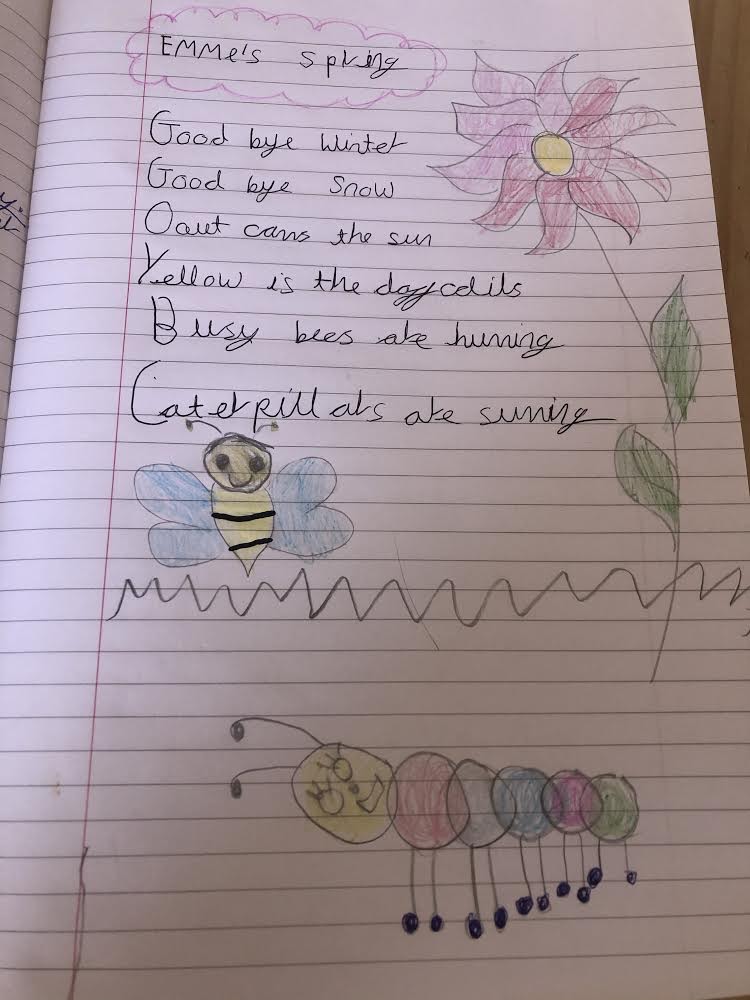 EMMe's spring
Good bye winter
Good bye snow
Oout cams the sun
Yellow is the daffcdils
Busy bees are huming
Caterpillars are suning